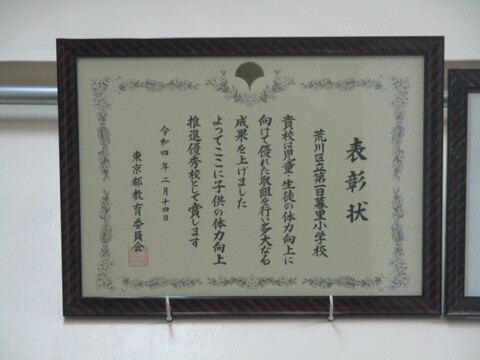 表彰状
荒川区立第二日暮里小学校
貴校は児童・生徒の体力向上に
向けて優れた取組を行い多大なる
成果を上げました
よってここに子供の体力向上
推進優秀校として賞します
令和四年二月十四日
東京都教育委員会